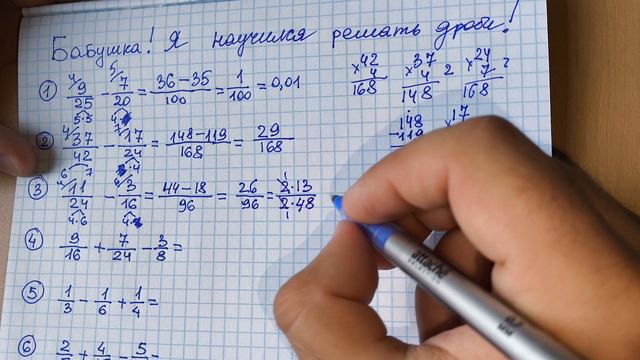 Бабушка! Я научился решать дроби!
1 9/25 - 7/20 = 36-35/100 = 1/100 = 0,01
5·5 4·
2 37/42 - 17/24 = 148-119/168 = 29/168
6 7 ·4
3 11/24 - 3/16 = 44-18/96 = 26/96 = 2·13/2·48
4·6 4·
4 9/16 + 7/24 - 3/8 =
5 1/3 - 1/6 + 1/4 =
6
×42 4 168
×37 4 148 2
×24 7 168 2
148 -119
17
attache